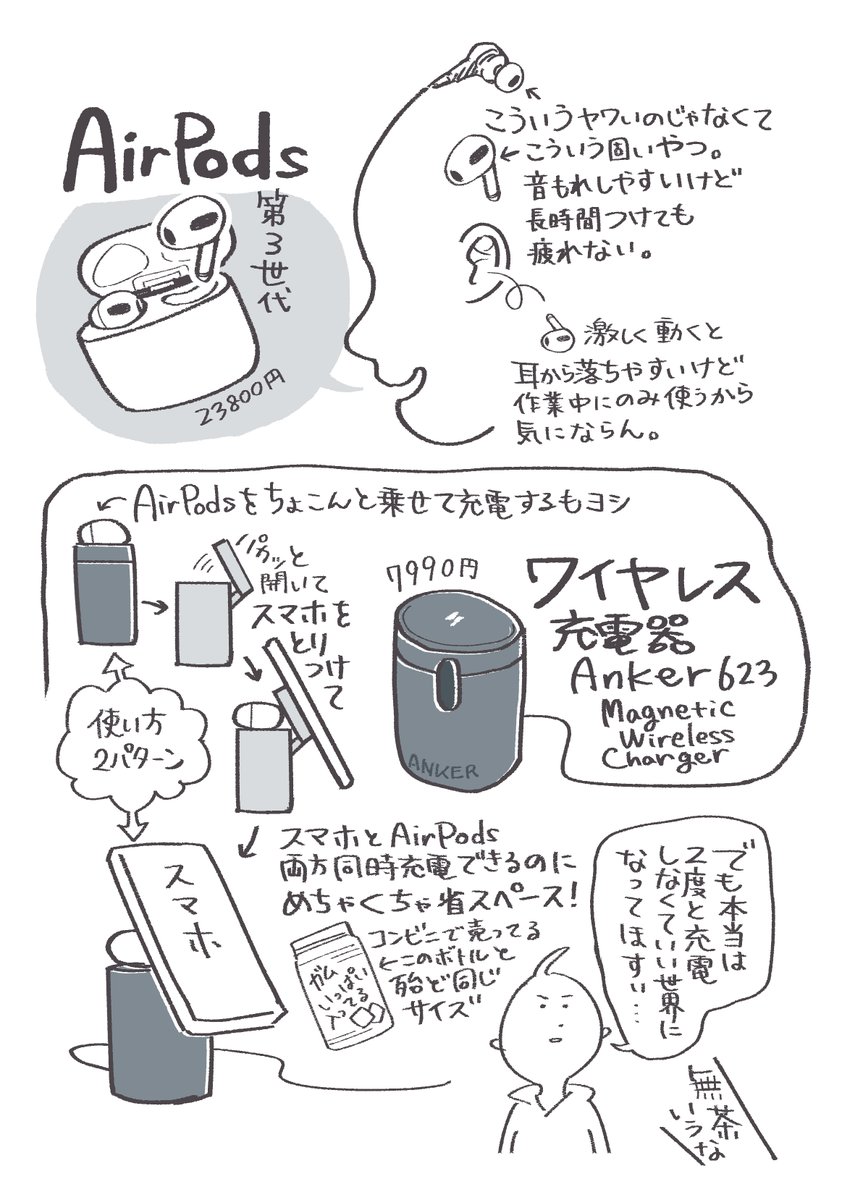 AirPods
第3世代
23800円
こういうヤワいのじゃなくて
←こういう固いやつ。
音もれしやすいけど
長時間つけても
疲れない。
激しく動くと
耳から落ちやすいけど
作業中にのみ使うから
気にならん。
AirPodsをちょこんと乗せて充電するもヨシ
パカッと
開いて
スマホを
とり
つけて
7990円
ワイヤレス
充電器
Anker 623
Magnetic
Wireless
Charger
ANKER
使い方
2パターン
スマホとAirPods
両方同時充電できるのに
めちゃくちゃ省スペース!
スマホ
コンビニで売ってる
←このボトルと
殆ど同じ
サイズ
ガム
いっぱい
入ってる
でも本当は
2度と充電
しなくていい世界に
なってほすぃ…
無茶
いうな